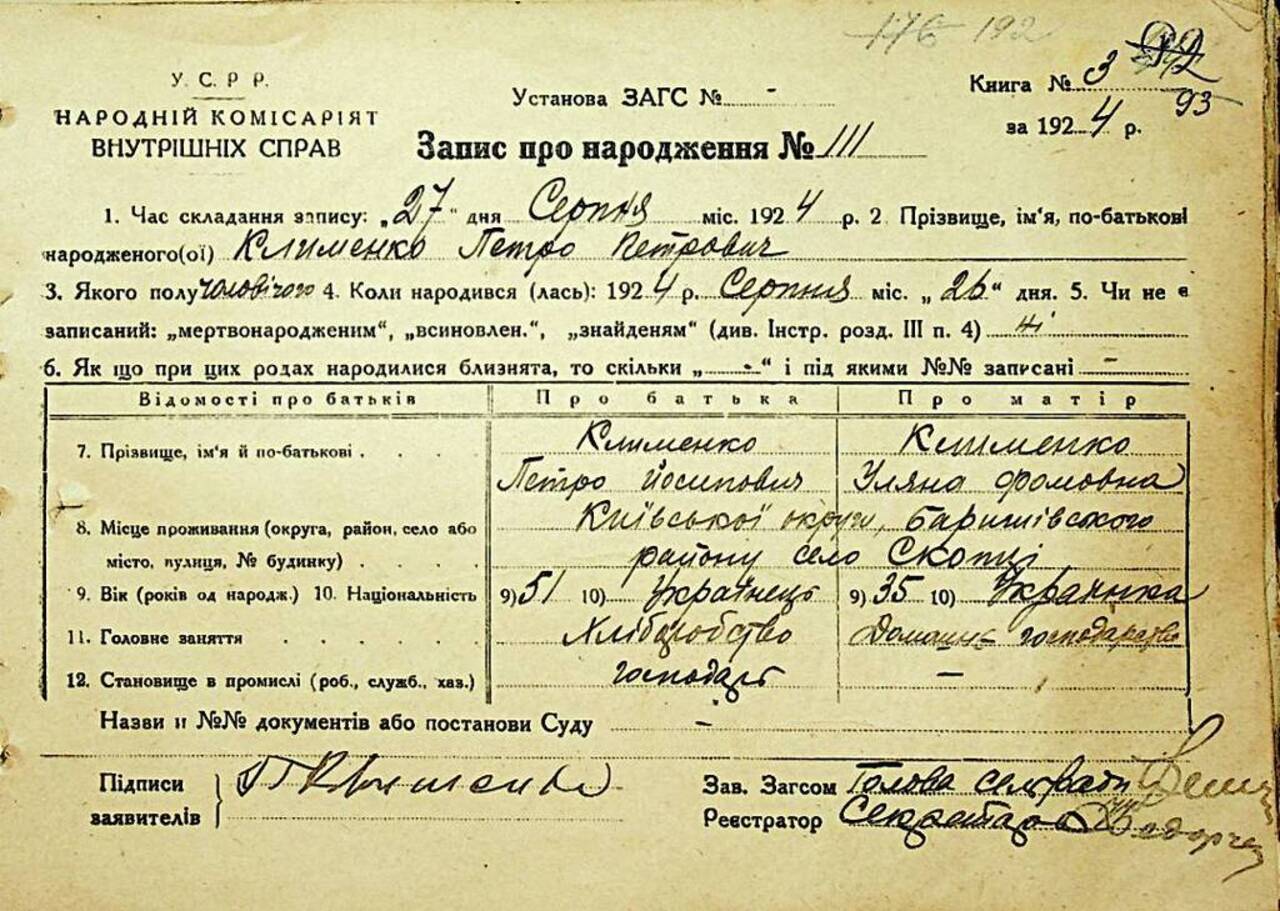 176 192
У. С. Р Р.
НАРОДНІЙ КОМІСАРІЯТ
ВНУТРІШНІХ СПРАВ
Установа ЗАГС № -
Книга № 3
93
за 1924 р.
Запис про народження № 111
1. Час складання запису: „27“ дня Серпня міс. 1924 р. 2. Прізвище, ім'я, по-батькові
народженого(ої) Клименко Петро Петрович
3. Якого полу чоловічого 4. Коли народився (лась): 1924 р. Серпня міс. „26“ дня. 5. Чи не є
записаний: „мертвонародженим“, „всиновлен.“, „знайденям“ (див. Інстр. розд. III п. 4) ні
6. Як що при цих родах народилися близнята, то скільки „-“ і під якими №№ записані -
Відомості про батьків Про батька Про матір
7. Прізвище, ім'я й по-батькові . . . . Клименко Клименко
Петро Йосипович Уляна Фомовна
8. Місце проживання (округа, район, село або Київської округи, Баришівського
місто, вулиця, № будинку) . . . . району село Скопці
9. Вік (років од народж.) 10. Національність 9) 51 10) Українець 9) 35 10) Українка
11. Головне заняття . . . . . . Хліборобство Домашн. господарство
12. Становище в промислі (роб., служб., хаз.) господарь -
Назви и №№ документів або постанови Суду -
Підписи
заявителів
П Клименко
Зав. Загсом Голова сельради
Реєстратор Секретарь